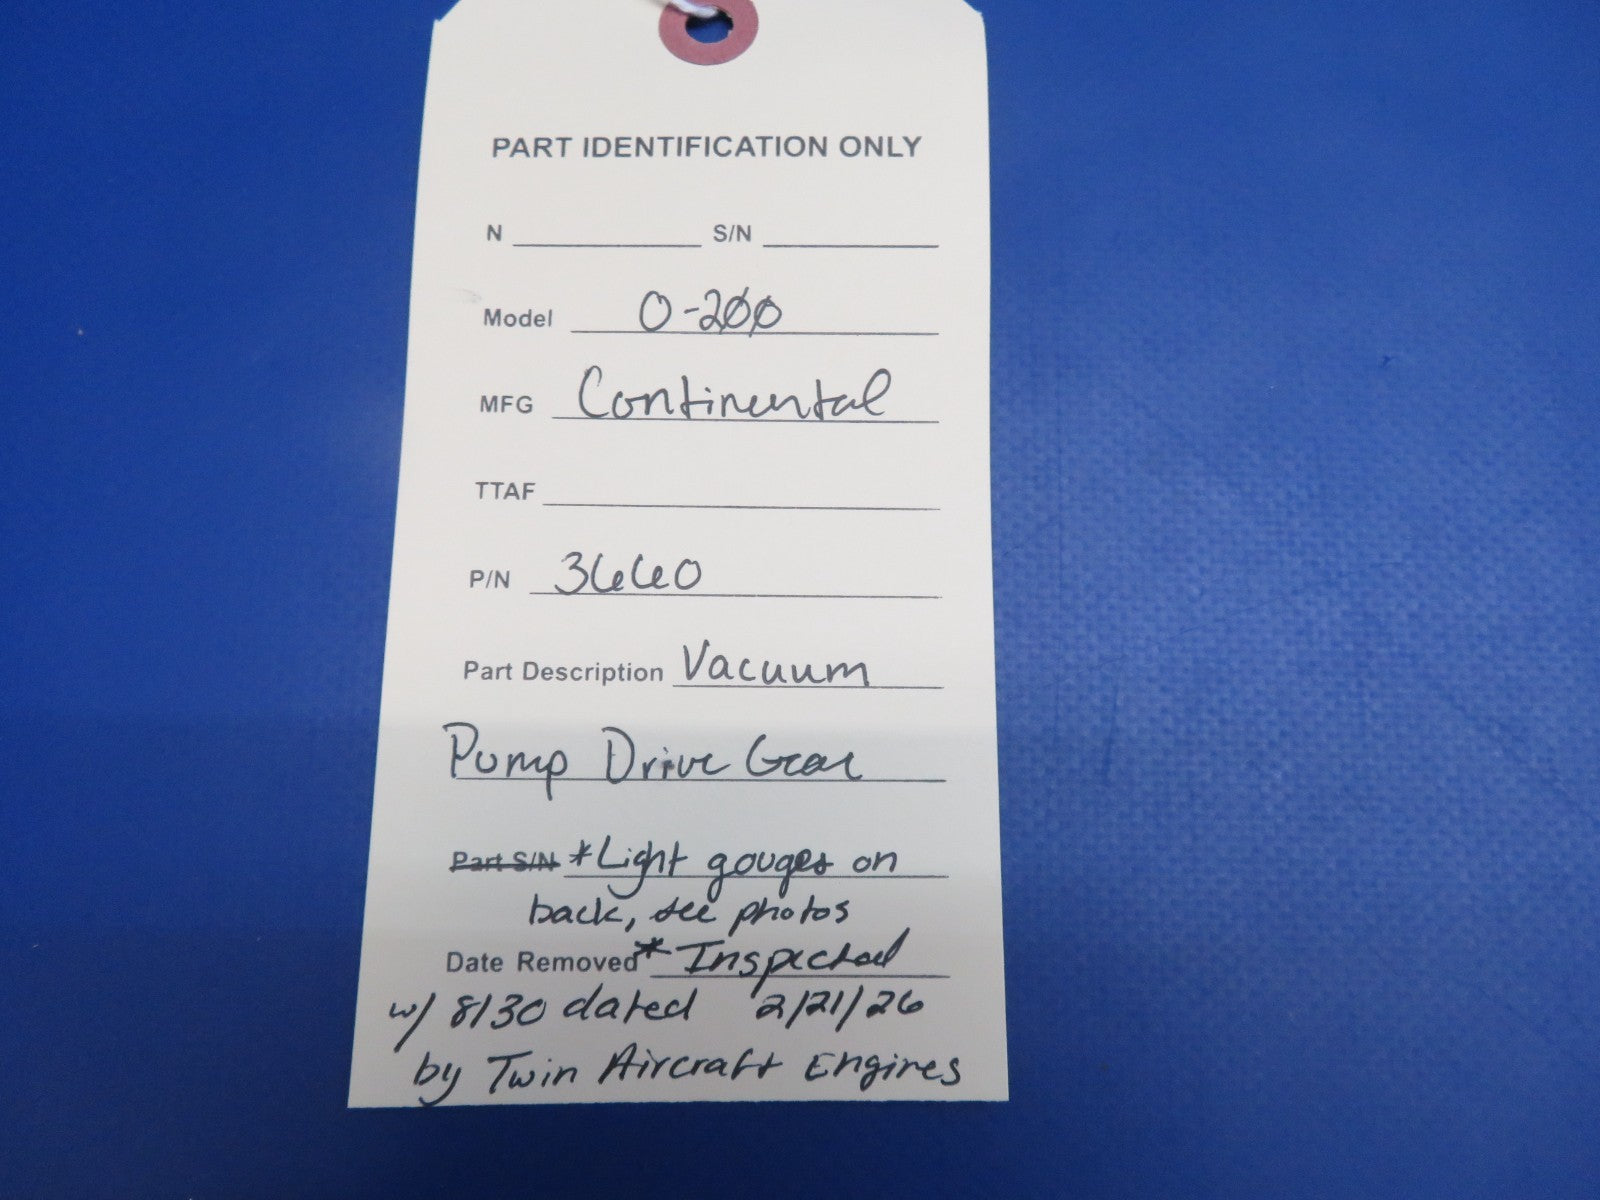 PART IDENTIFICATION ONLY
N S/N
Model O-200
MFG Continental
TTAF
P/N 3660
Part Description Vacuum
Pump Drive Gear
Part S/N *Light gouges on
back, see photos
Date Removed * Inspected
w/ 8130 dated 2/21/26
by Twin Aircraft Engines